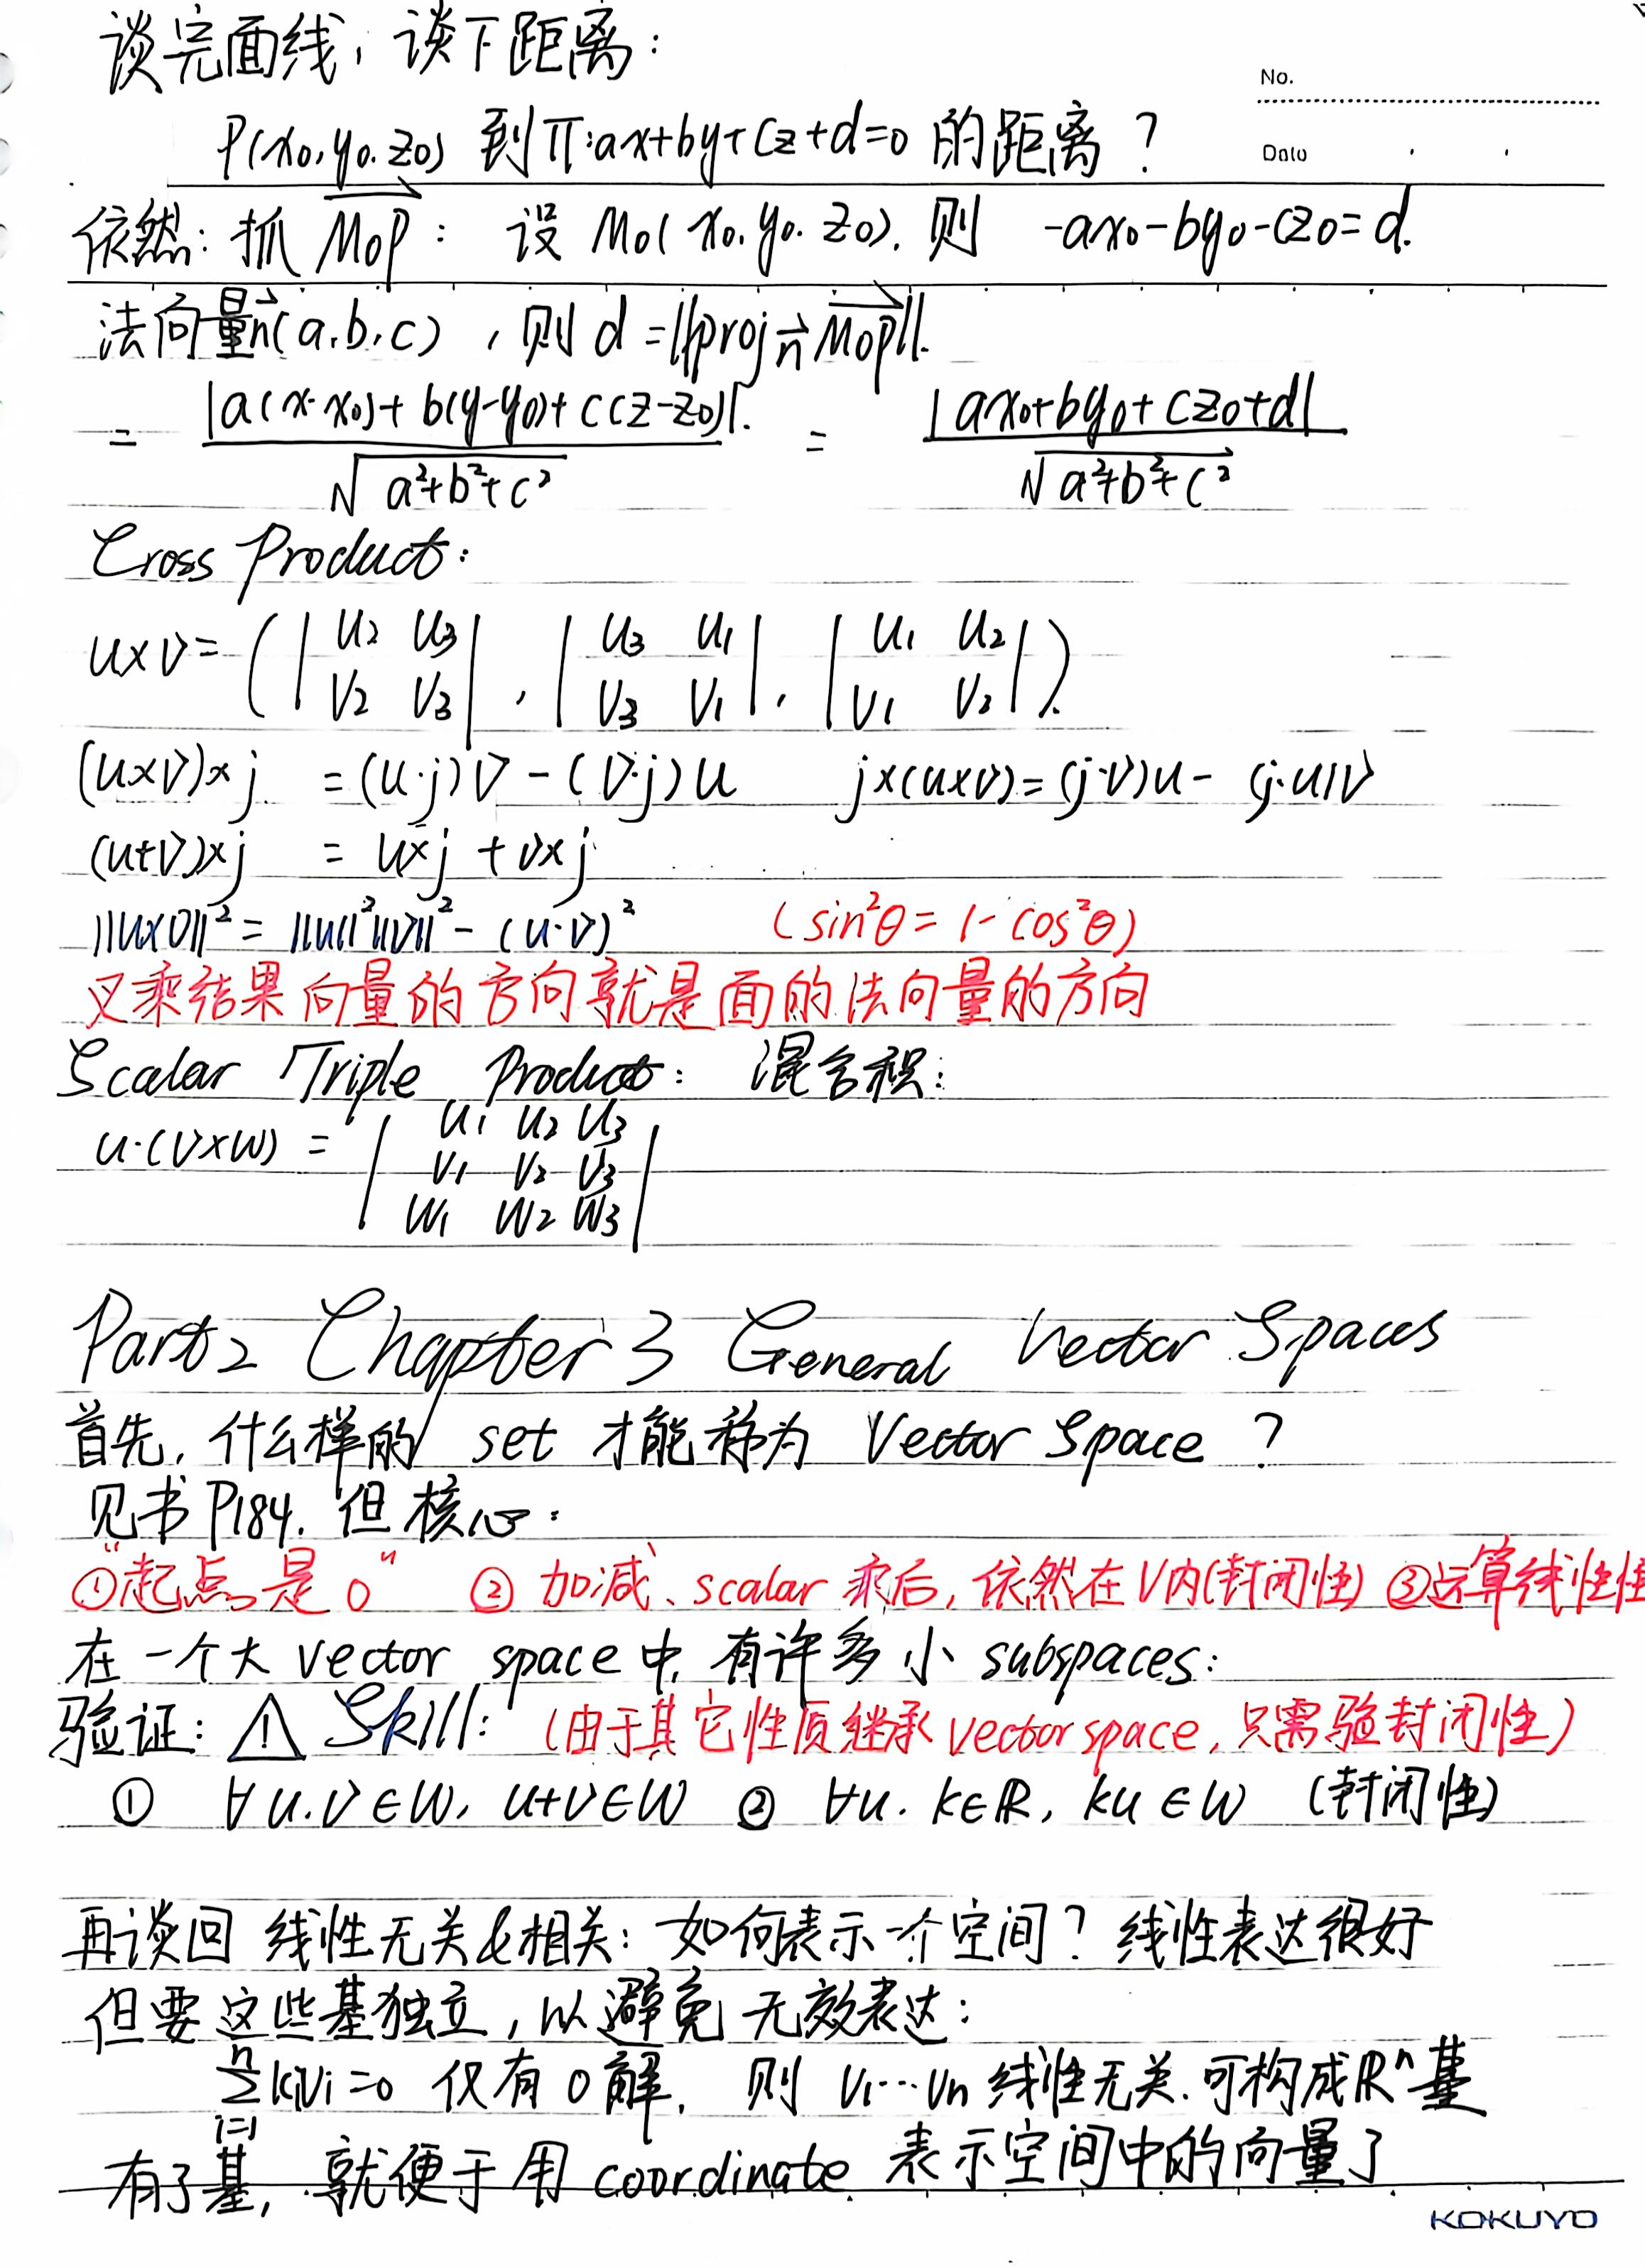 谈完面线，谈下距离：
No.
P(x₀, y₀. z₀) 到 π:ax+by+cz+d=0 的距离？
Date
依然：抓 M₀P⃗ ： 设 M₀( x₀. y₀. z₀). 则 -ax₀-by₀-cz₀=d.
法向量n⃗(a,b,c) ，则 d =||proj n⃗ M₀P⃗||.
= |a(x-x₀)+b(y-y₀)+c(z-z₀)|. / √a²+b²+c² = |ax₀+by₀+cz₀+d| / √a²+b²+c²
Cross Product:
u×v= ( | u₂ u₃ / v₂ v₃ | , | u₃ u₁ / v₃ v₁ | , | u₁ u₂ / v₁ v₂ | ).
(u×v)×j = (u·j)v - (v·j)u j×(u×v)=(j·v)u - (j·u)v
(u+v)×j = u×j + v×j
||u×v||² = ||u||²||v||² - (u·v)² (sin²θ = 1- cos²θ)
叉乘结果向量的方向就是面的法向量的方向
Scalar Triple Product: 混合积：
u·(v×w) = | u₁ u₂ u₃ / v₁ v₂ v₃ / w₁ w₂ w₃ |
Part 2 Chapter 3 General Vector Spaces
首先，什么样的 set 才能称为 Vector Space ?
见书 P184. 但核心：
①"起点是 0" ② 加减、scalar 乘后，依然在V内(封闭性) ③运算线性性
在一个大 vector space 中，有许多小 subspaces:
验证：⚠ Skill: (由于其它性质继承 vector space, 只需验封闭性)
① ∀u.v∈W, u+v∈W ② ∀u. k∈ℝ, ku∈W (封闭性)
再谈回 线性无关&相关：如何表示一个空间？线性表达很好
但要这些基独立，以避免无效表达：
∑ⁿᵢ₌₁ kᵢvᵢ=0 仅有 0 解. 则 v₁…vₙ 线性无关.可构成ℝⁿ基
有了基，就便于用 coordinate 表示空间中的向量了
KOKUYO